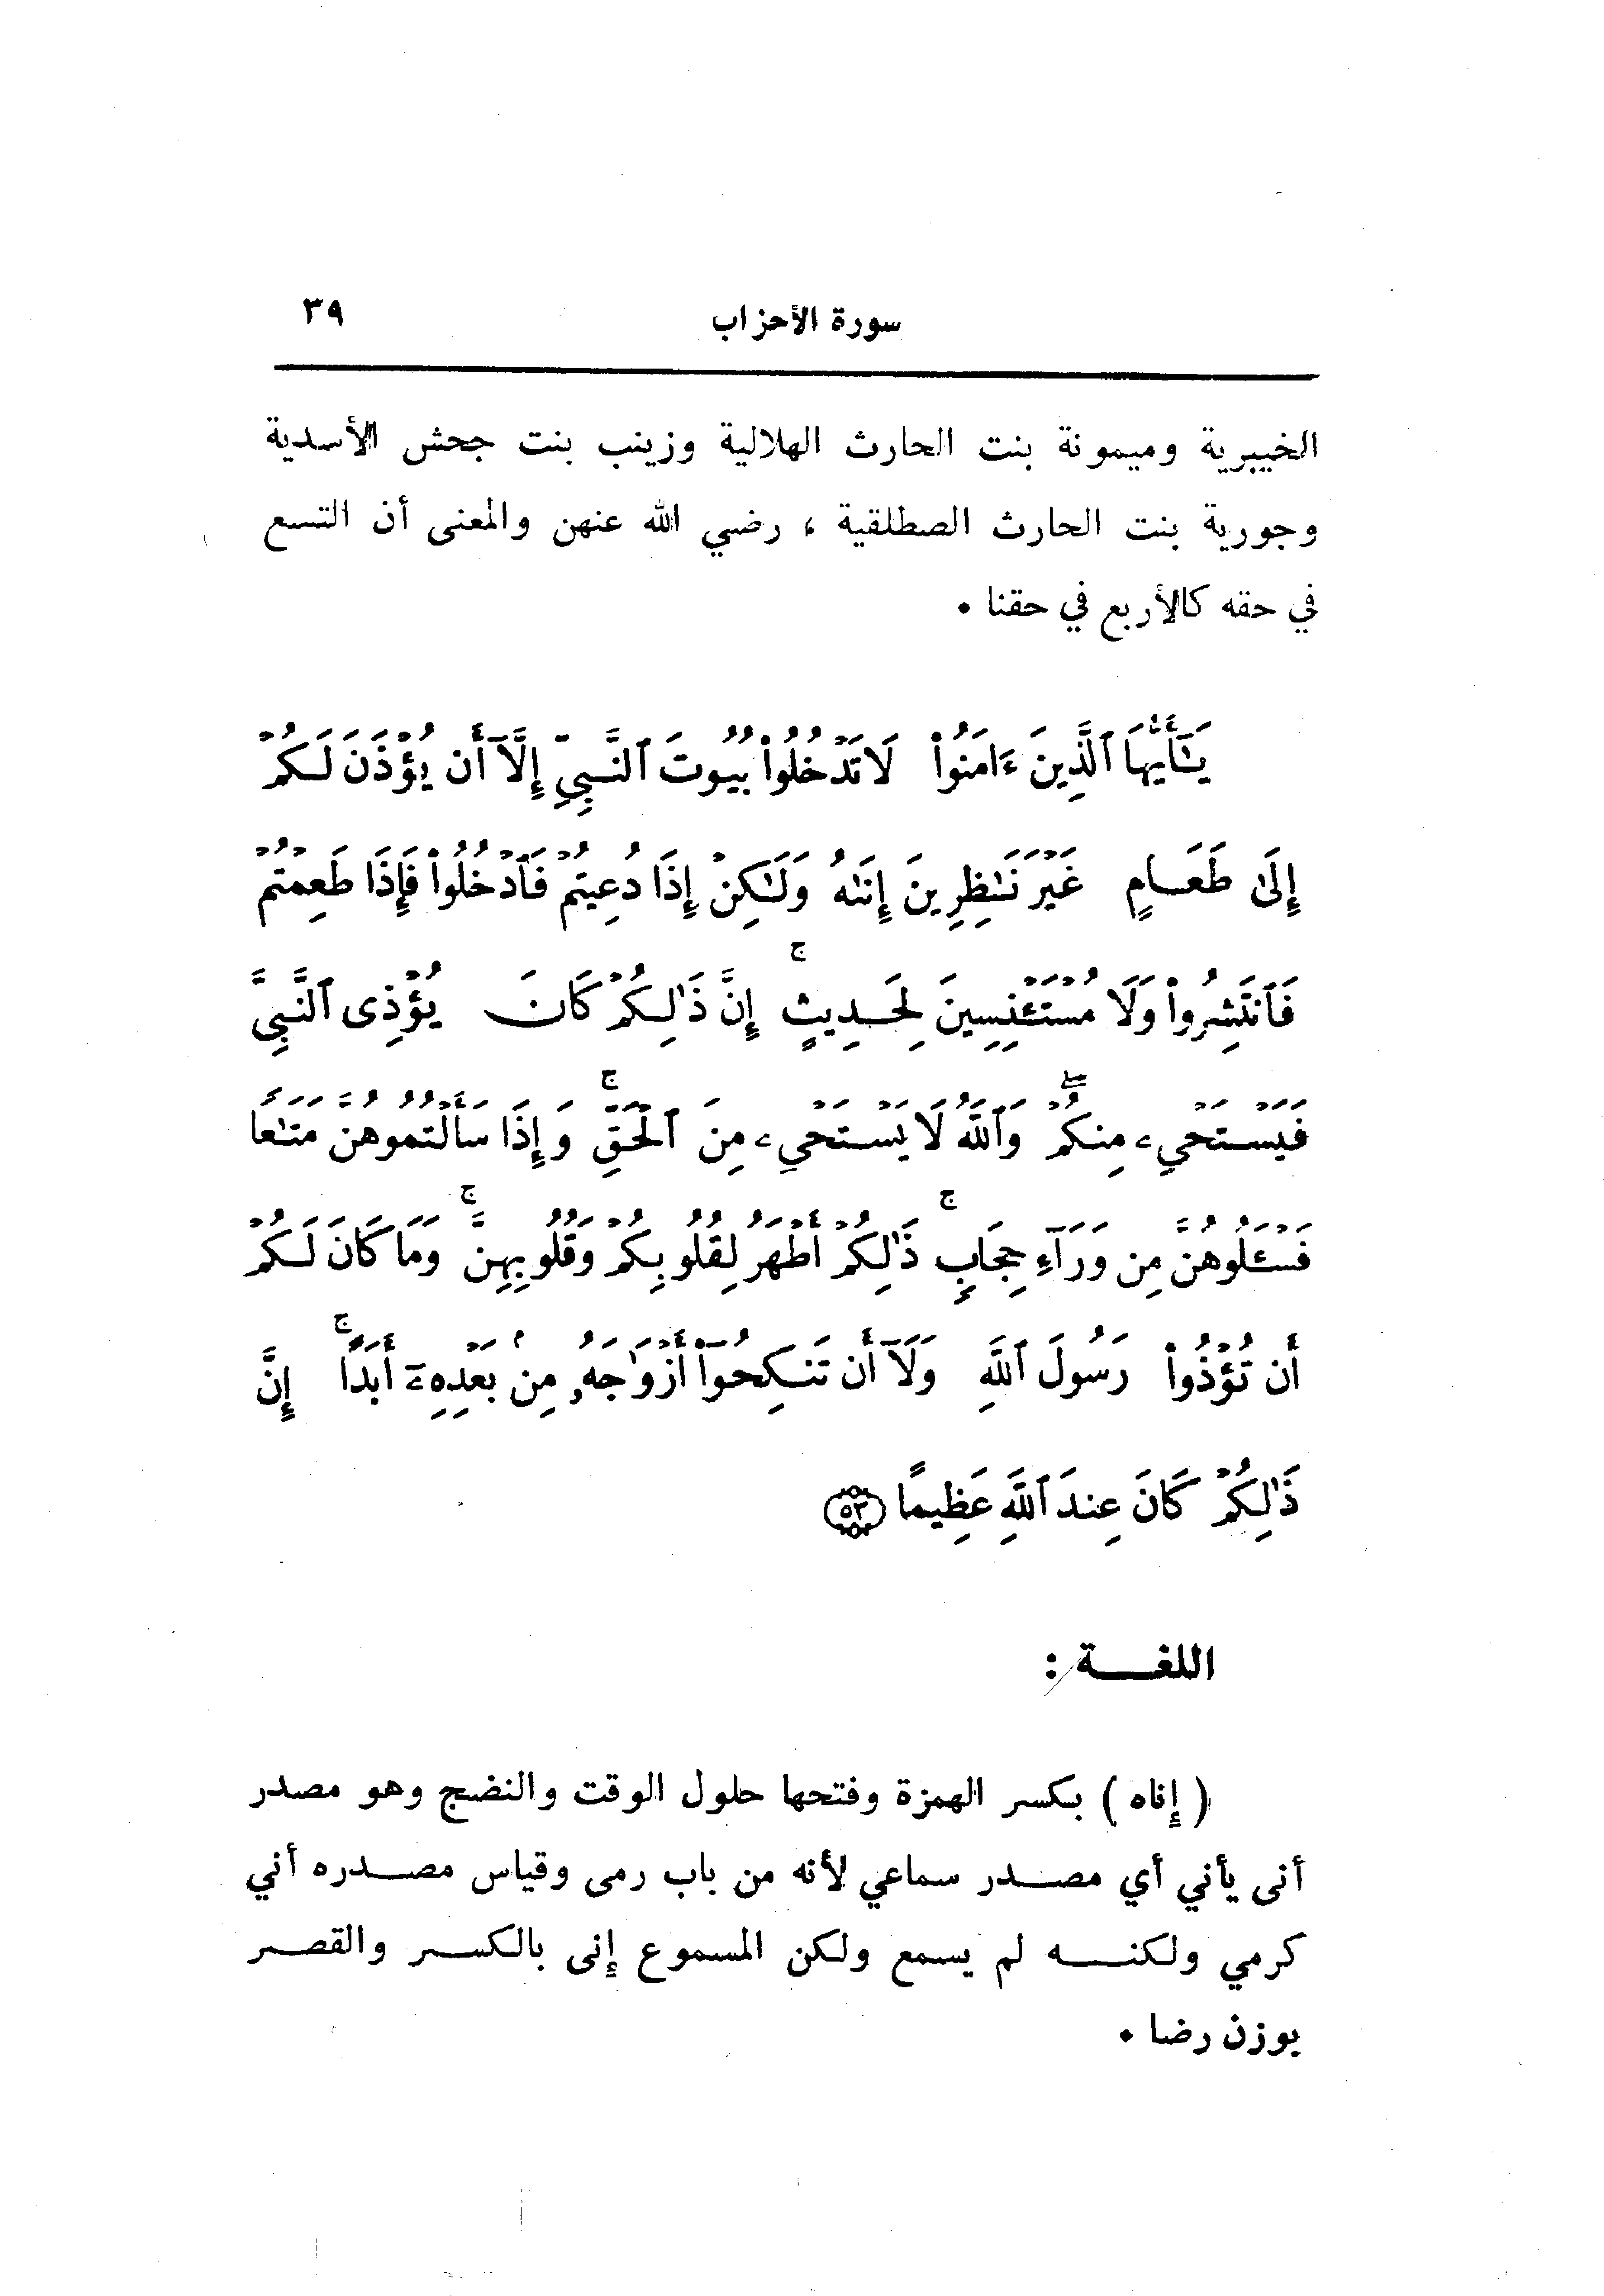 سورة الأحزاب ٣٩
الخيبرية وميمونة بنت الحارث الهلالية وزينب بنت جحش الأسدية
وجورية بنت الحارث الصطلقية ، رضي الله عنهن والمعنى أن التسع
في حقه كالأربع في حقنا •
يَٰٓأَيُّهَا ٱلَّذِينَ ءَامَنُوا۟ لَا تَدْخُلُوا۟ بُيُوتَ ٱلنَّبِىِّ إِلَّآ أَن يُؤْذَنَ لَكُمْ
إِلَىٰ طَعَامٍ غَيْرَ نَٰظِرِينَ إِنَىٰهُ وَلَٰكِنْ إِذَا دُعِيتُمْ فَٱدْخُلُوا۟ فَإِذَا طَعِمْتُمْ
فَٱنتَشِرُوا۟ وَلَا مُسْتَـْٔنِسِينَ لِحَدِيثٍ ۚ إِنَّ ذَٰلِكُمْ كَانَ يُؤْذِى ٱلنَّبِىَّ
فَيَسْتَحْىِۦ مِنكُمْ ۖ وَٱللَّهُ لَا يَسْتَحْىِۦ مِنَ ٱلْحَقِّ ۚ وَإِذَا سَأَلْتُمُوهُنَّ مَتَٰعًا
فَسْـَٔلُوهُنَّ مِن وَرَآءِ حِجَابٍ ۚ ذَٰلِكُمْ أَطْهَرُ لِقُلُوبِكُمْ وَقُلُوبِهِنَّ ۚ وَمَا كَانَ لَكُمْ
أَن تُؤْذُوا۟ رَسُولَ ٱللَّهِ وَلَآ أَن تَنكِحُوٓا۟ أَزْوَٰجَهُۥ مِنۢ بَعْدِهِۦٓ أَبَدًا ۚ إِنَّ
ذَٰلِكُمْ كَانَ عِندَ ٱللَّهِ عَظِيمًا ﴿٥٣﴾
اللغـــة :
( إناه ) بكسر الهمزة وفتحها حلول الوقت والنضج وهو مصدر
أنى يأني أي مصـــدر سماعي لأنه من باب رمى وقياس مصـــدره أني
كرمي ولكنـــه لم يسمع ولكن المسموع إنى بالكســر والقصــر
بوزن رضا •